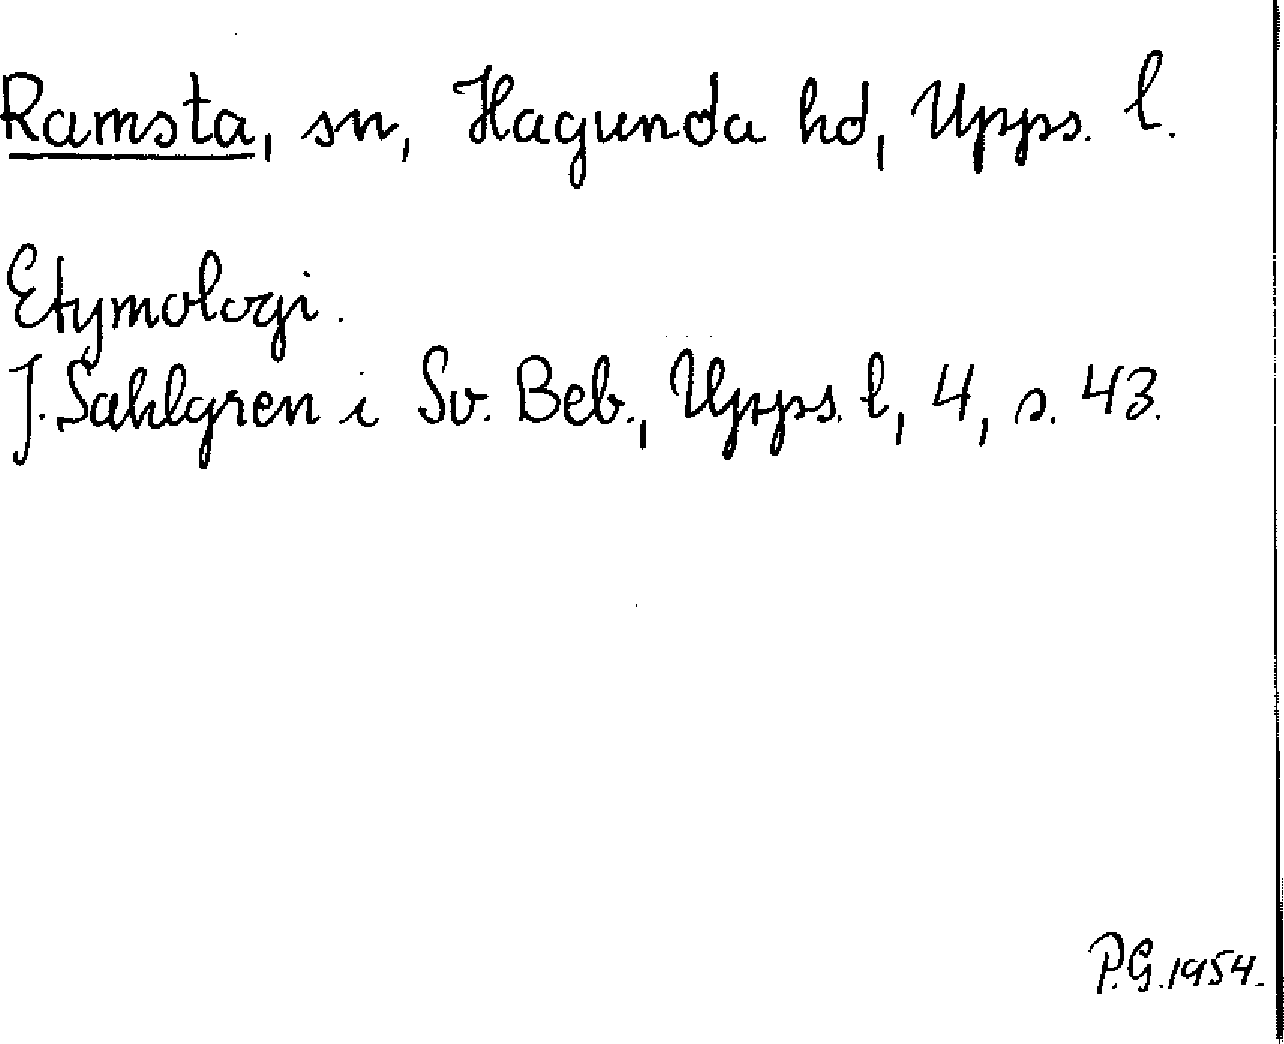 Ramsta, sn, Hagunda hd, Upps. l.
Etymologi.
J. Sahlgren i Sv. Beb., Upps. l, 4, s. 43.
P.G. 1954.